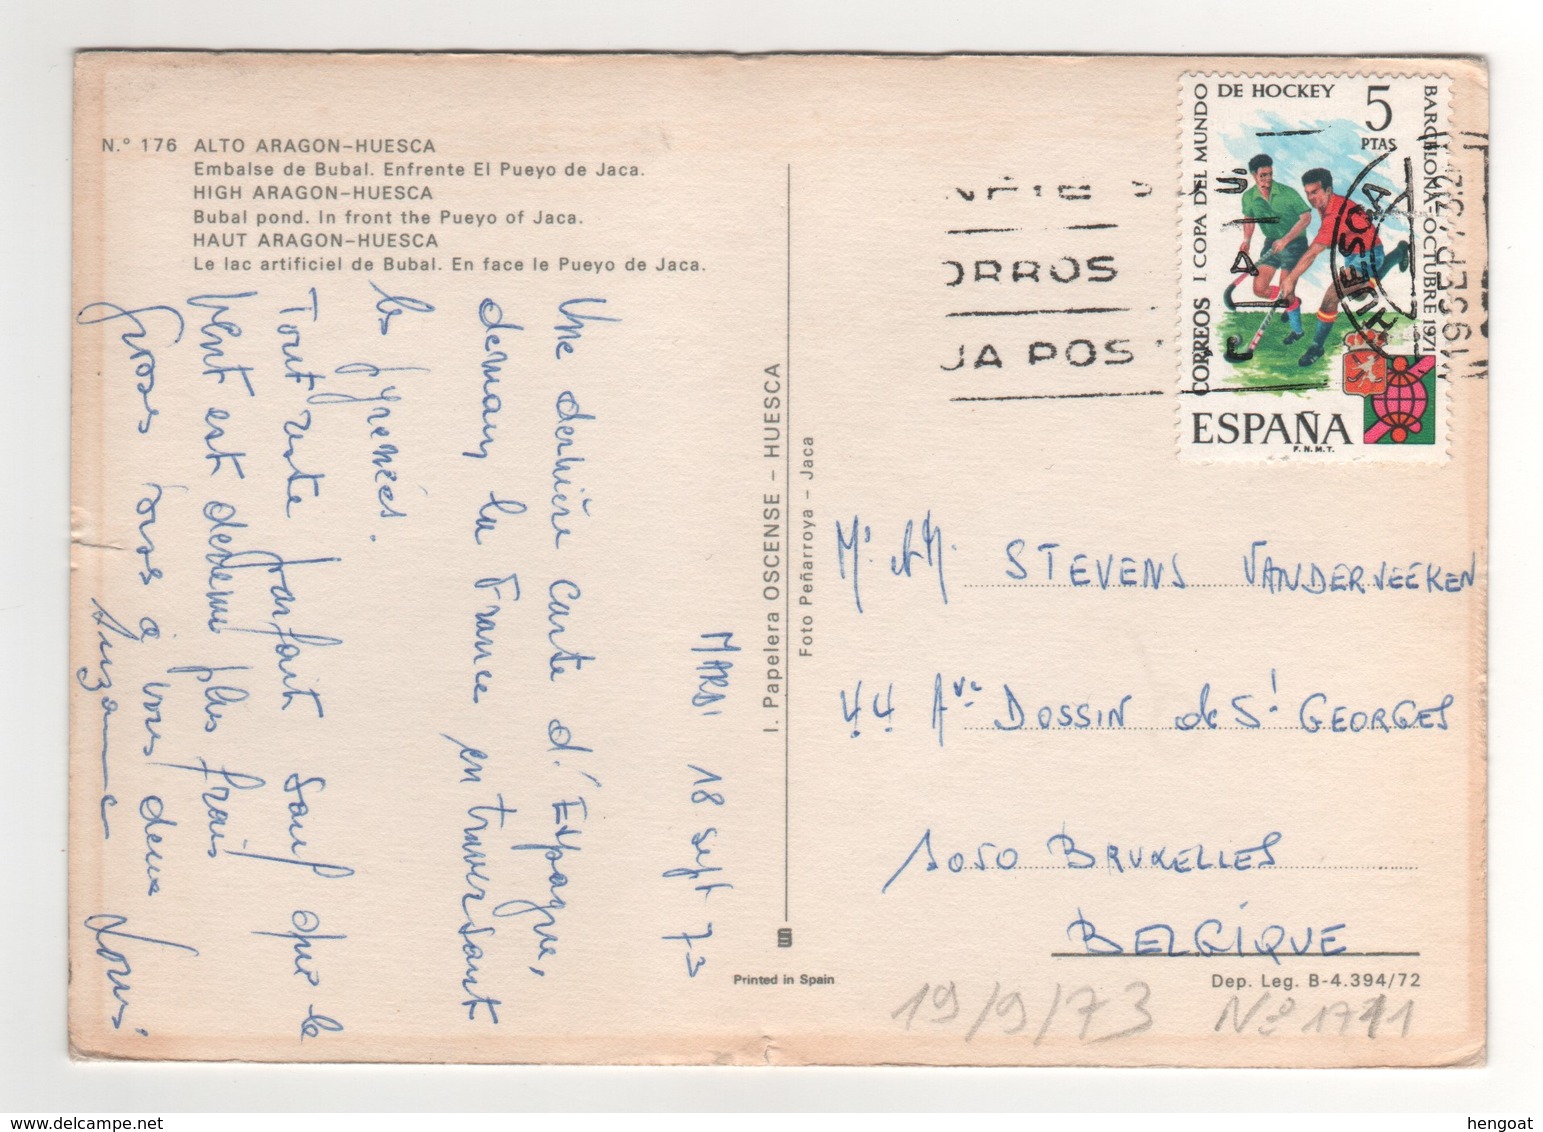 N.° 176 ALTO ARAGON-HUESCA
Embalse de Bubal. Enfrente El Pueyo de Jaca.
HIGH ARAGON-HUESCA
Bubal pond. In front the Pueyo of Jaca.
HAUT ARAGON-HUESCA
Le lac artificiel de Bubal. En face le Pueyo de Jaca.
MARDI 18 Sept 73
Une dernière carte d'Espagne,
demain la France en traversant
les pyrenées.
Tout reste parfait sauf que le
vent est devenu plus frais
Gross bises à vous deux
Suzanne Louis.
I. Papelera OSCENSE - HUESCA
Foto Peñarroya - Jaca
Printed in Spain
I COPA DEL MUNDO DE HOCKEY
BARCELONA-OCTUBRE 1971
5
PTAS
CORREOS
ESPAÑA
F.N.M.T.
ORROS
JA POS
HUESCA
19 SEP 73
Mr et M. STEVENS VANDERVEEKEN
44 Ave DOSSIN de St GEORGES
1050 BRUXELLES
BELGIQUE
Dep. Leg. B-4.394/72
19/9/73 No 1711
hengoat